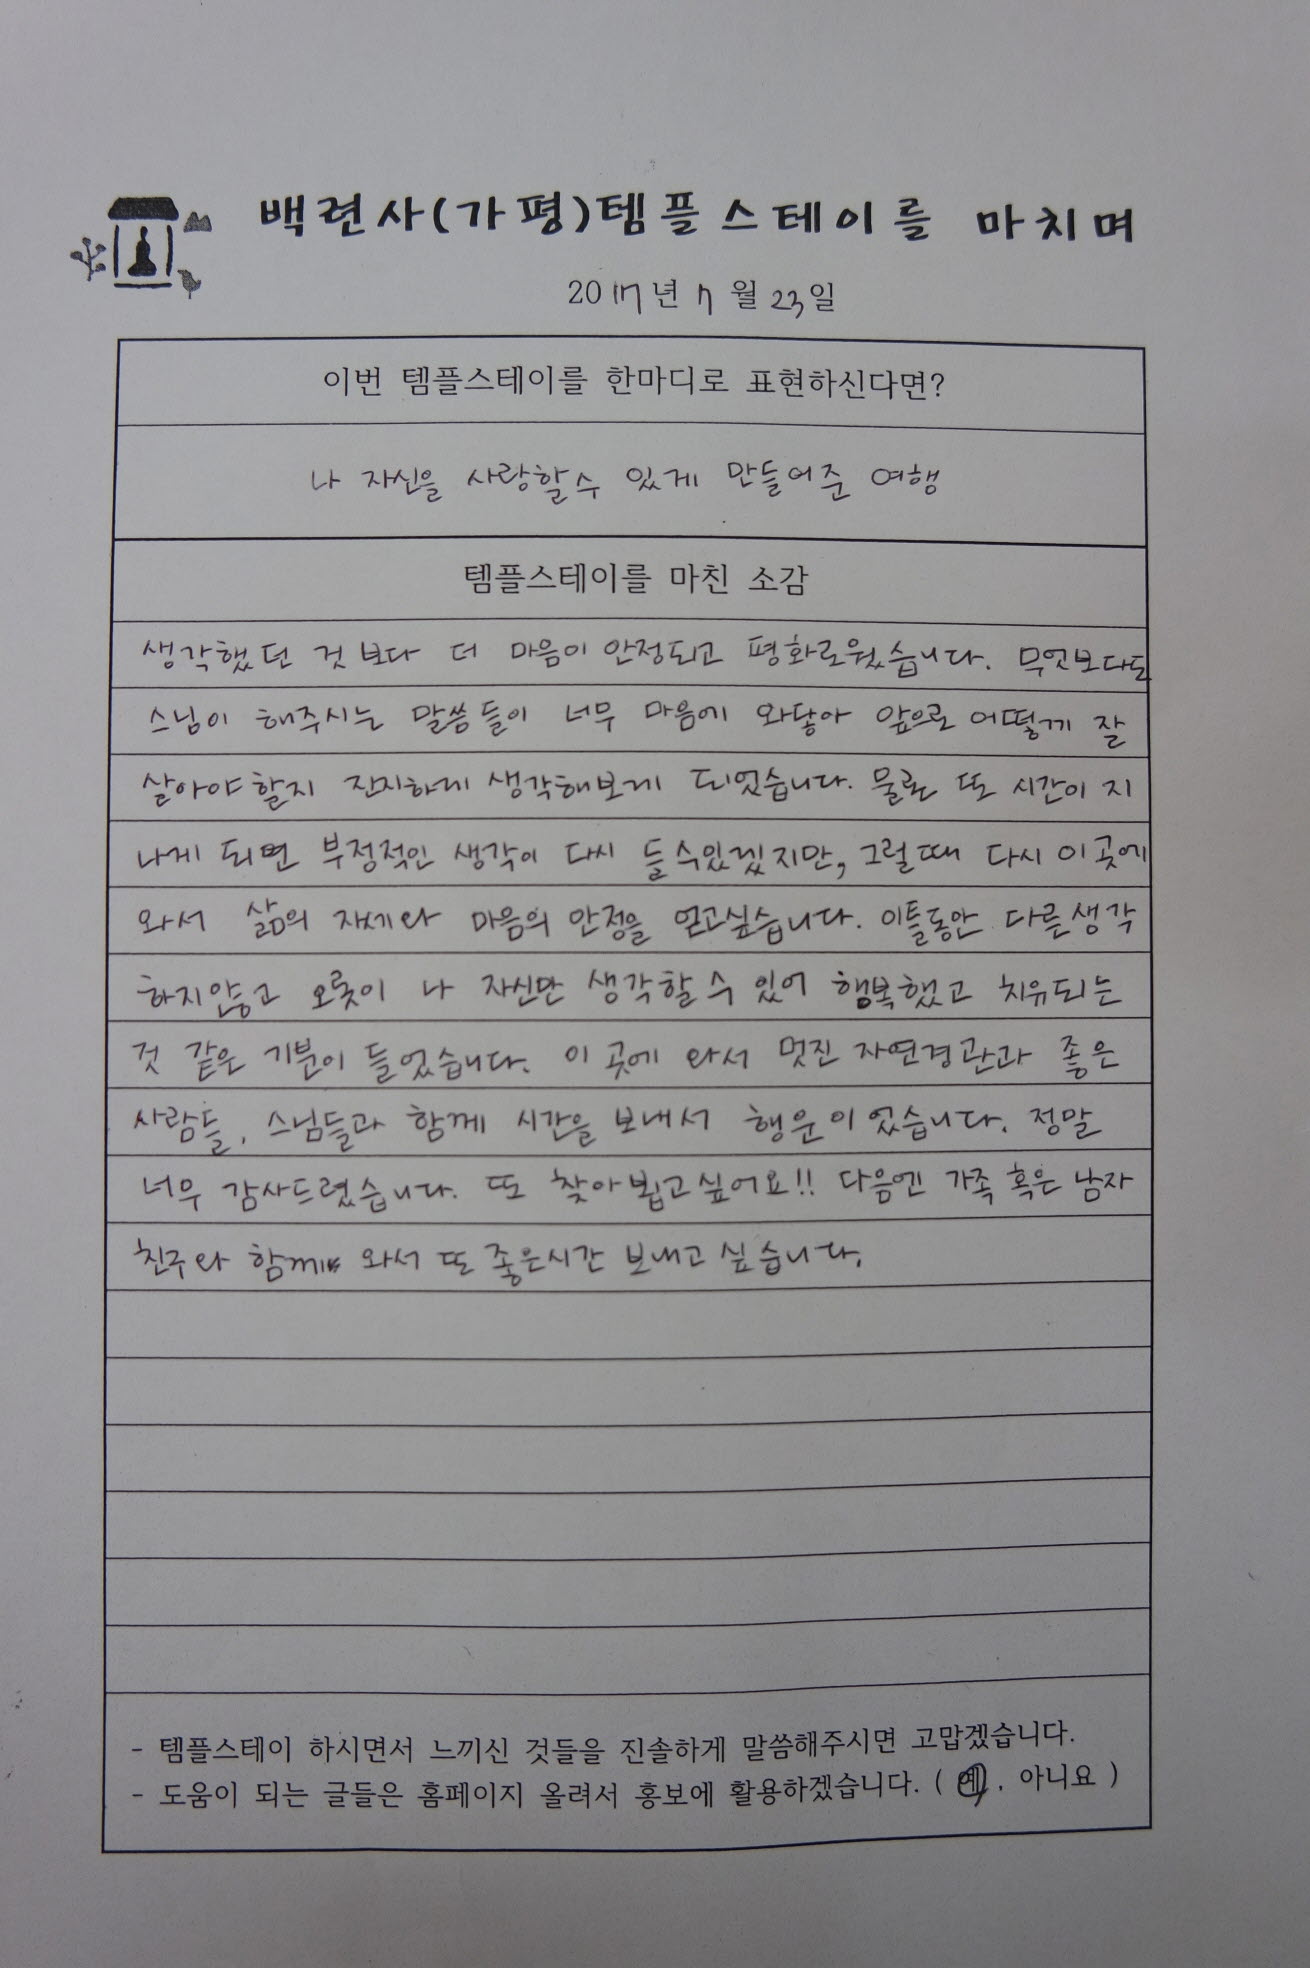 백련사(가평)템플스테이를 마치며
2017년 7월 23일
이번 템플스테이를 한마디로 표현하신다면?
나 자신을 사랑할수 있게 만들어준 여행
템플스테이를 마친 소감
생각했던 것 보다 더 마음이 안정되고 평화로웠습니다. 무엇보다도
스님이 해주시는 말씀들이 너무 마음에 와닿아 앞으로 어떻게 잘
살아야 할지 진지하게 생각해보게 되었습니다. 물론 또 시간이 지
나게 되면 부정적인 생각이 다시 들 수있겠지만, 그럴때 다시 이 곳에
와서 삶의 자세와 마음의 안정을 얻고싶습니다. 이틀동안 다른생각
하지않고 오롯이 나 자신만 생각할 수 있어 행복했고 치유되는
것 같은 기분이 들었습니다. 이 곳에 와서 멋진 자연경관과 좋은
사람들, 스님들과 함께 시간을 보내서 행운이었습니다. 정말
너무 감사드렸습니다. 또 찾아뵙고싶어요!! 다음엔 가족 혹은 남자
친구와 함께 와서 또 좋은시간 보내고 싶습니다.
- 템플스테이 하시면서 느끼신 것들을 진솔하게 말씀해주시면 고맙겠습니다.
- 도움이 되는 글들은 홈페이지 올려서 홍보에 활용하겠습니다. ( 예, 아니요 )